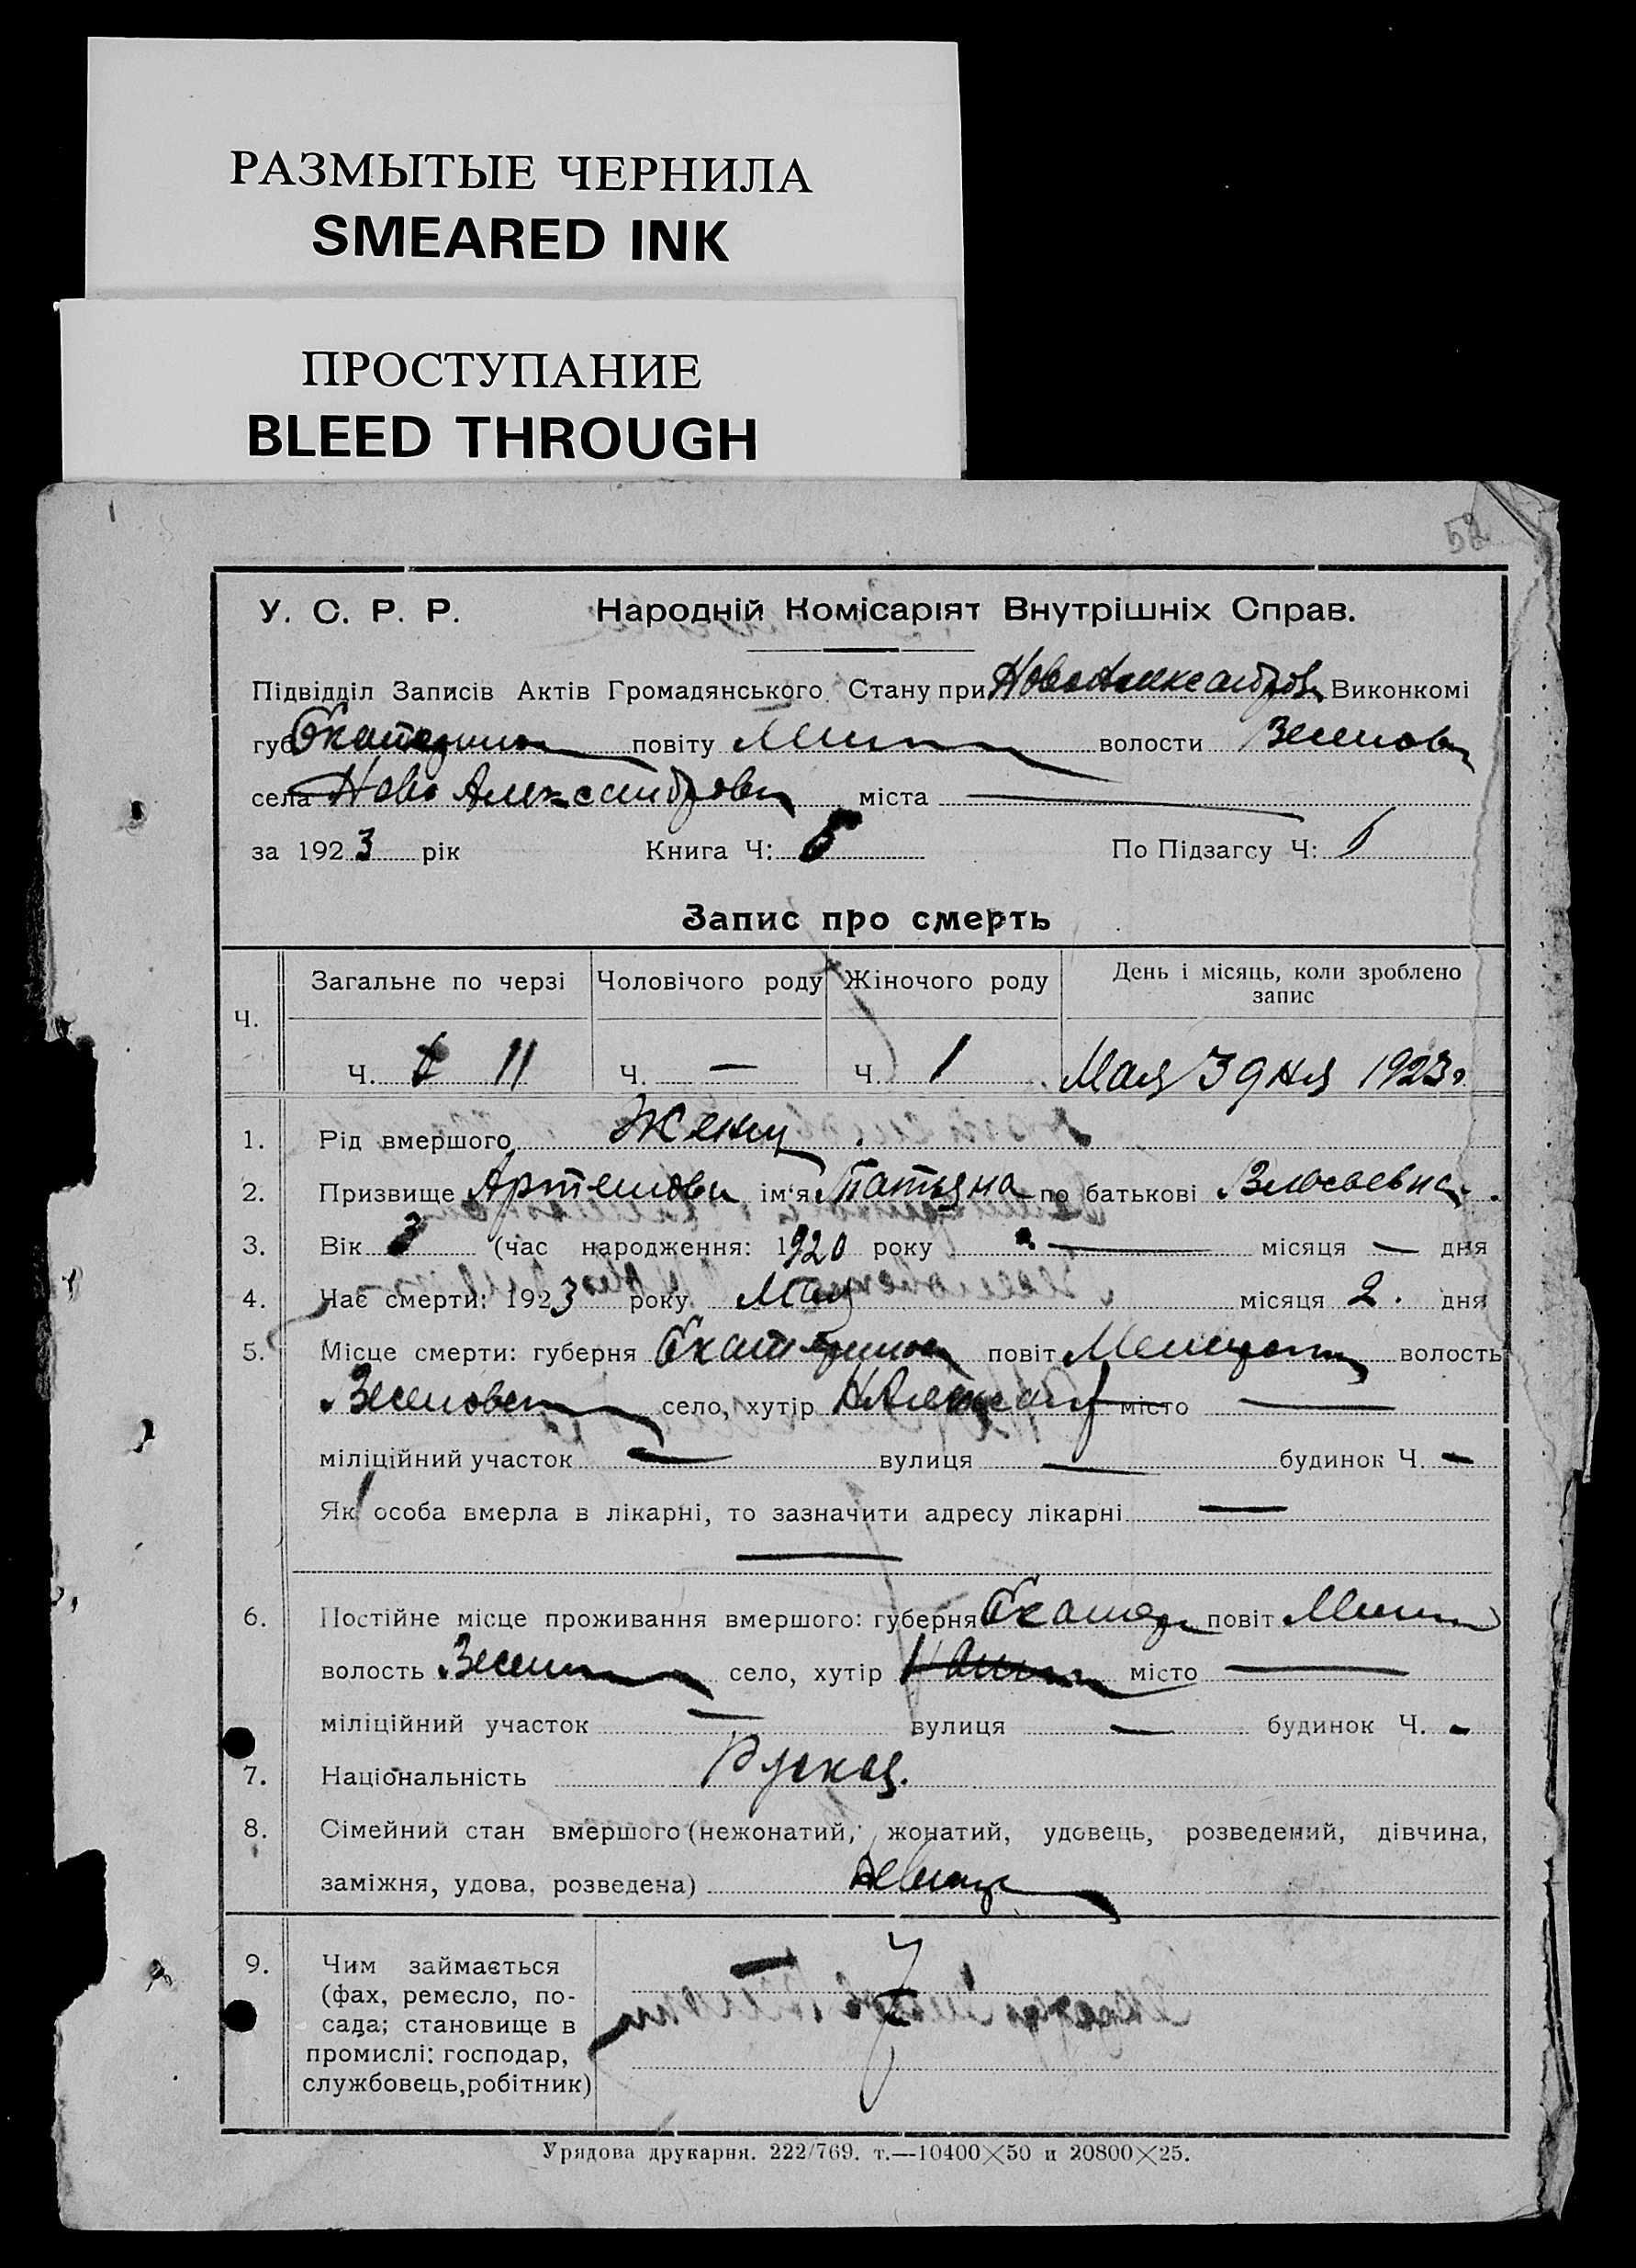 РАЗМЫТЫЕ ЧЕРНИЛА
SMEARED INK
ПРОСТУПАНИЕ
BLEED THROUGH
58
У. С. Р. Р. Народній Комісаріят Внутрішніх Справ.
Підвідділ Записів Актів Громадянського Стану при НовоАлександров Виконкомі
губ Екатерино повіту волости
села Ново Александровки міста —
за 1923 рік Книга Ч: 5 По Підзагсу Ч:
Запис про смерть
Ч. Загальне по черзі Чоловічого роду Жіночого роду День і місяць, коли зроблено запис
Ч. 11 Ч. — Ч. 1 Мая 3 дня 1923г.
1. Рід вмершого Женщ
2. Призвище Артемова ім'я Татьяна по батькові
3. Вік 3 (час народження: 1920 року — місяця — дня
4. Час смерти: 1923 року Мая місяця 2. дня
5. Місце смерти: губерня Екатеринос повіт волость
село, хутір НАлександ місто —
міліційний участок — вулиця — будинок Ч. —
Як особа вмерла в лікарні, то зазначити адресу лікарні —
—
6. Постійне місце проживання вмершого: губерня Екатер повіт
волость село, хутір місто —
міліційний участок — вулиця — будинок Ч. —
7. Національність Руская.
8. Сімейний стан вмершого (нежонатий, жонатий, удовець, розведений, дівчина,
заміжня, удова, розведена) Девица
9. Чим займається
(фах, ремесло, по-
сада; становище в
промислі: господар,
службовець, робітник)
Урядова друкарня. 222/769. т.—10400×50 и 20800×25.